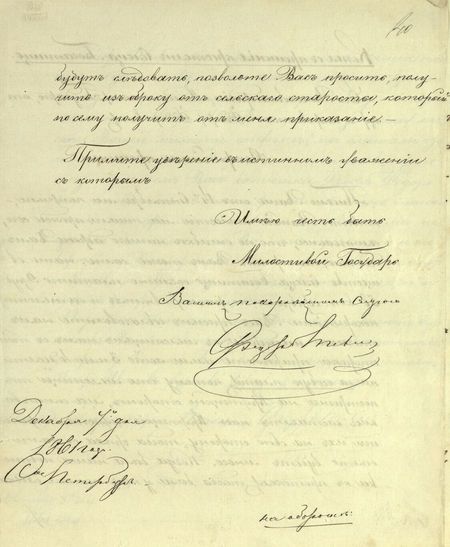 будутъ слѣдовать, позвольте Васъ просить, полу-
чить изъ оброку отъ сельскаго старосты, который
по сему получитъ отъ меня приказаніе. —
Примите увѣреніе въ истинномъ уваженіи
съ которымъ
Имѣю честь быть
Милостивый Государь
Вашимъ покорнѣйшимъ слугою
Декабря 7го дня
1861 год.
С. Петербургъ
на оборотѣ: